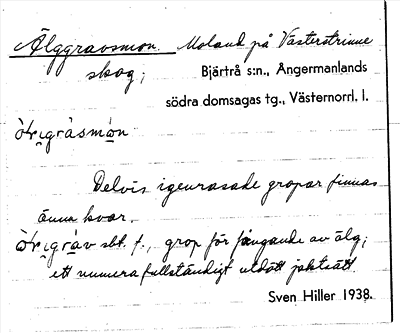 Älggravsmon. Moland på Västerstrinne
skog;
Bjärtrå s:n., Ångermanlands
södra domsagas tg., Västernorrl. l.
Delvis igenrasade gropar finnas
ännu kvar.
sbt. f., grop för fångande av älg;
ett numera fullständigt utdött jaktsätt
Sven Hiller 1938.